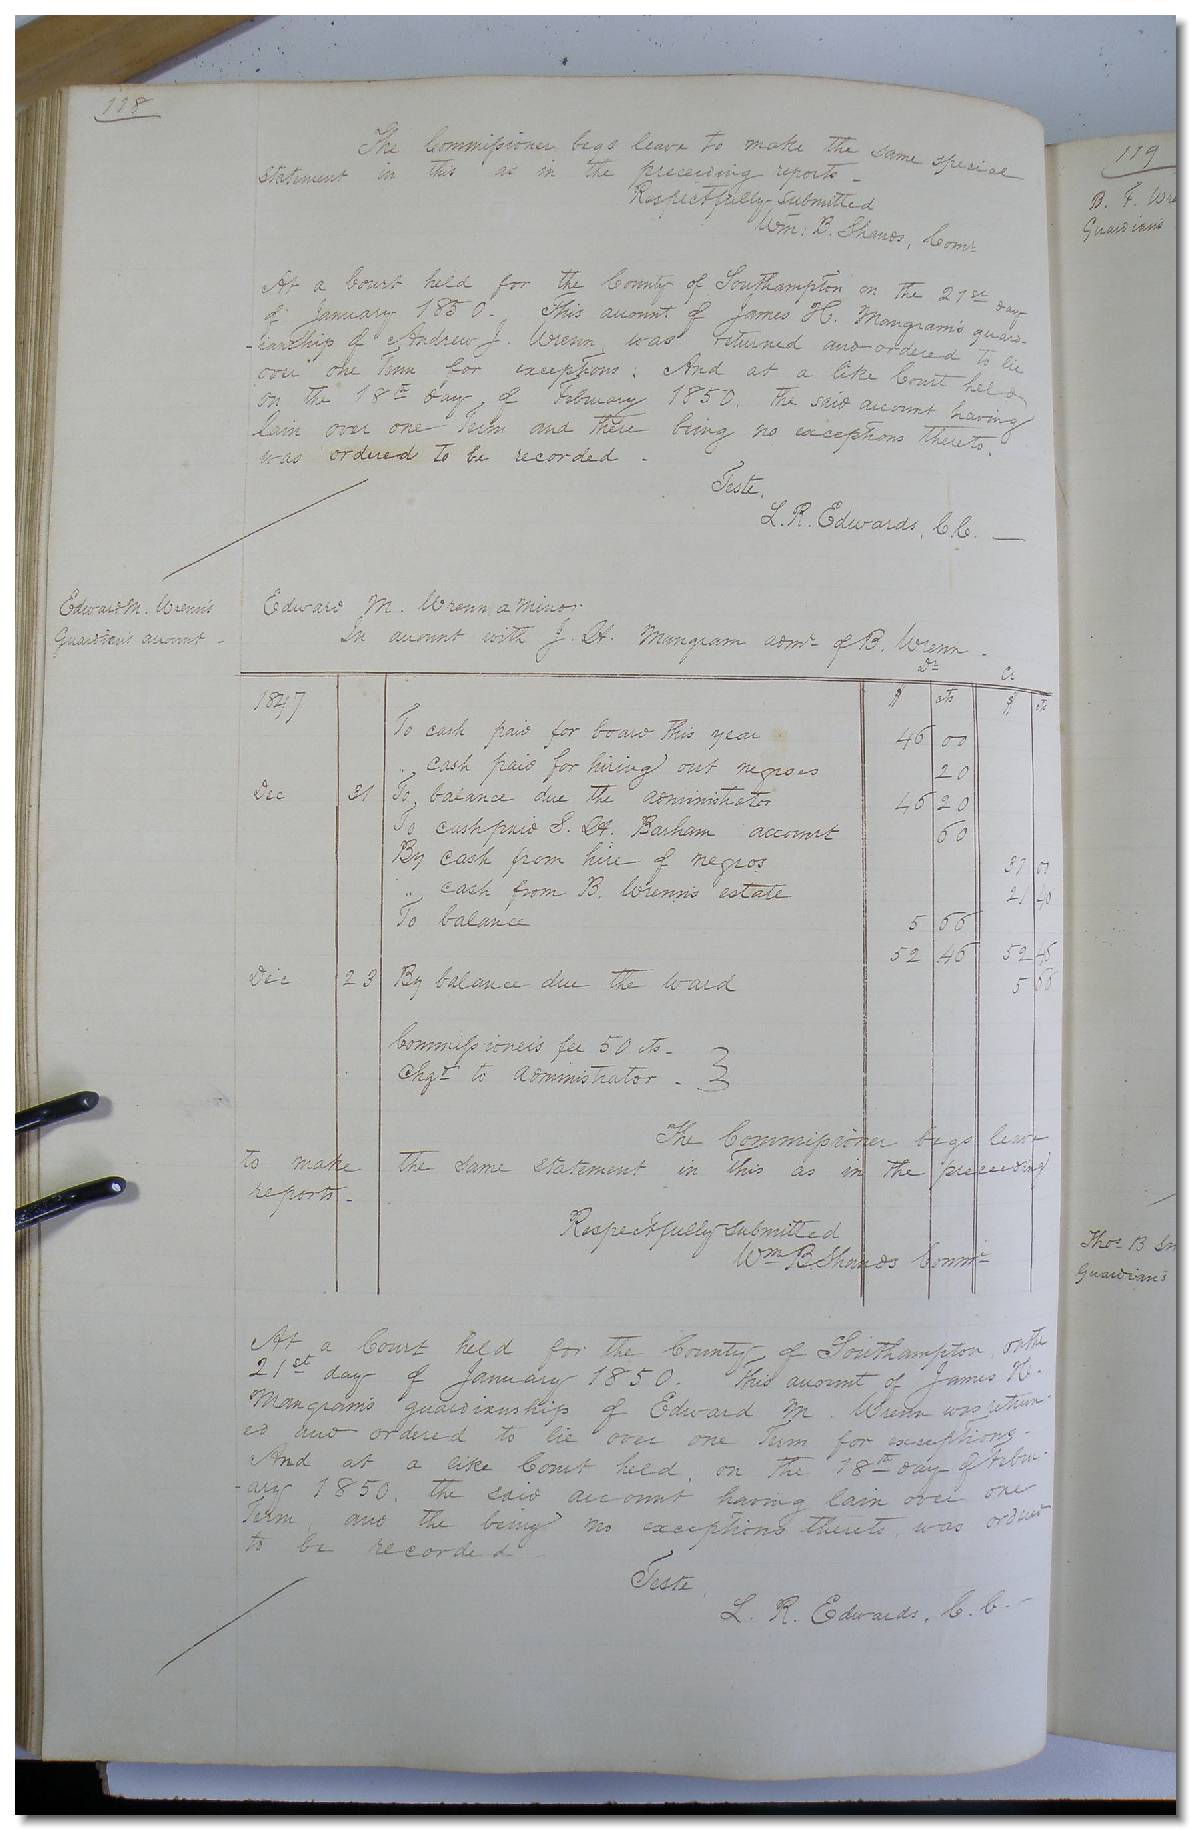 118
The Commissioner begs leave to make the same special
statement in this as in the preceeding reports -
Respectfully submitted
Wm: B. Shands, Comr
At a Court held for the County of Southampton on the 21st day
of January 1850. This account of James H. Mangram's guar-
-ianship of Andrew J. Wrenn was returned and ordered to lie
over one Term for exceptions: And at a like Court held
on the 18th day of February 1850. the said account having
lain over one Term and there being no exceptions thereto.
was ordered to be recorded -
Teste,
L. R. Edwards, C.C. -
Edward M. Wrenn's
Guardian's account -
Edward M. Wrenn a minor
In account with J. H. Mangram admr of B. Wrenn -
Dr Cr
1847 $ cts $ cts
To cash paid for board this year 46 00
" cash paid for hiring out negroes 20
Dec 31 To balance due the administrator 46 20
To cash paid S. H. Barham account 60
By cash from hire of negros 31 00
" cash from B. Wrenn's estate 21 40
To balance 5 66
52 46 52 46
Dec 23 By balance due the ward 5 66
Commissioner's fee 50 cts -
Chgd to administrator -
The Commissioner begs leave
to make the same statement in this as in the preceeding
reports -
Respectfully submitted
Wm B Shands Commr
At a Court held for the County of Southampton on the
21st day of January 1850. This account of James H.
Mangram's guardianship of Edward M. Wrenn was return
ed and ordered to lie over one Term for exceptions -
And at a like Court held, on the 18th day of Febru
-ary 1850. the said account having lain over one
Term and the being no exceptions thereto was ordered
to be recorded
Teste,
L. R. Edwards, C. C. -
119
B. F. Wre
Guardians
Thos B
Guardian's